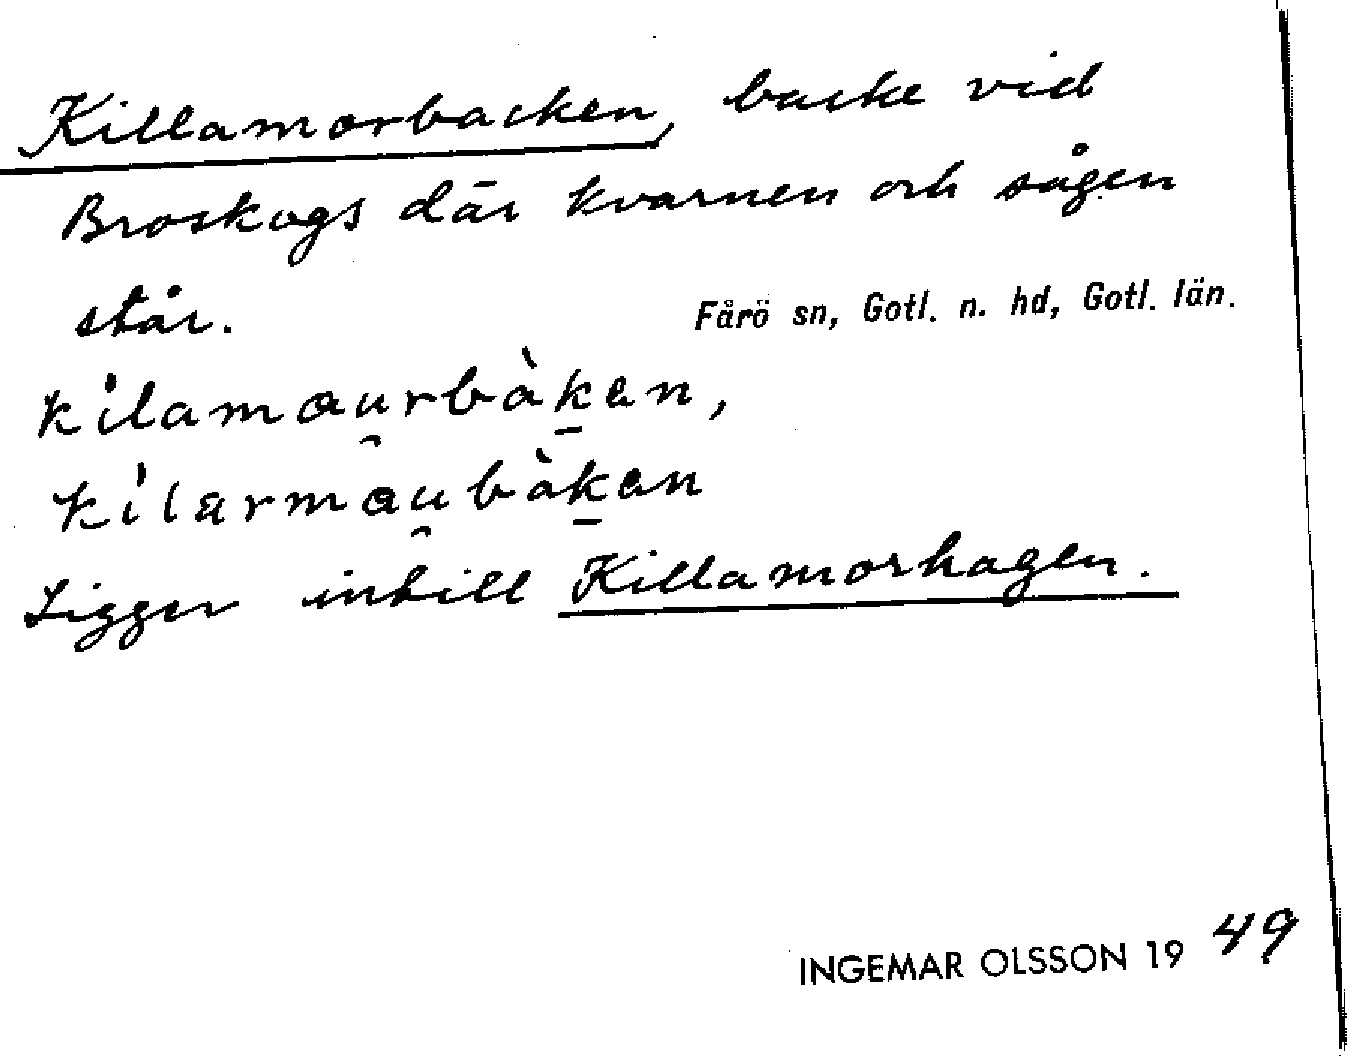 Killamorbacken, backe vid
Broskogs där kvarnen och sågen
står.
Fårö sn, Gotl. n. hd, Gotl. län.
kìlamau̯rbàk̠en,
kìlarmau̯bàk̠en
Ligger intill Killamorhagen.
INGEMAR OLSSON 19 49